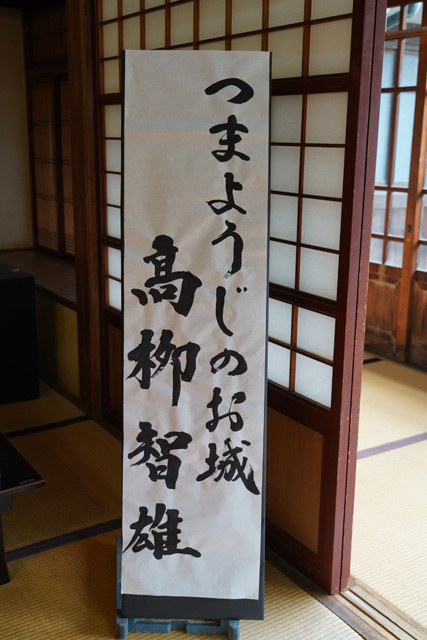 つまようじのお城
髙栁智雄